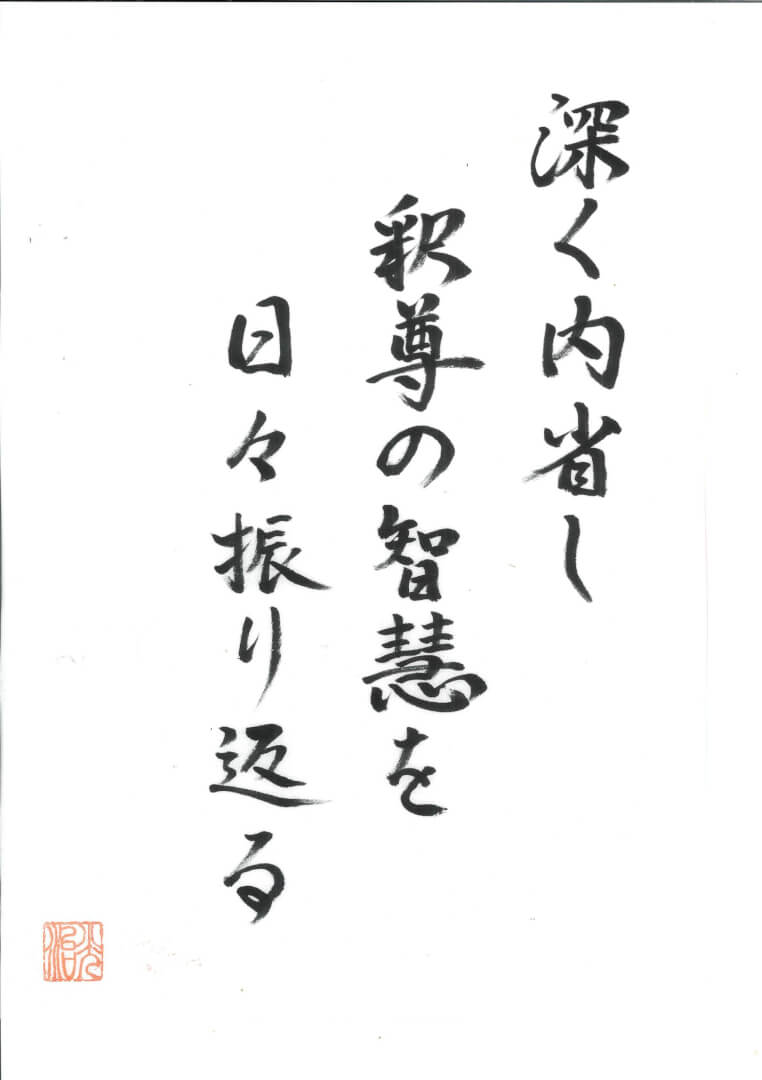 深く内省し
釈尊の智慧を
日々振り返る